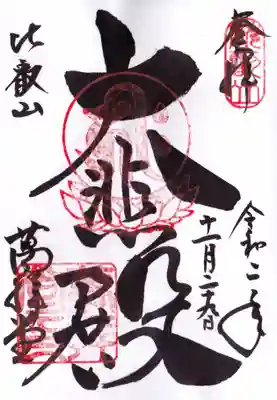 奉拝
令和二年
十一月二十八日
大悲殿
比叡山
萬拝堂